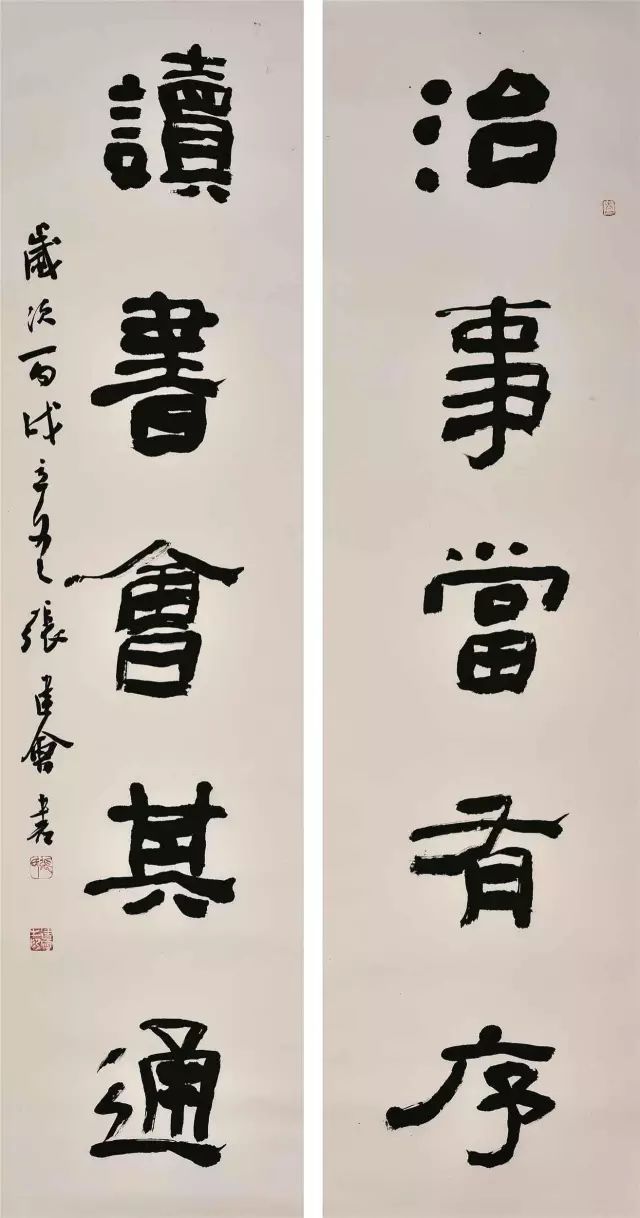 治事當有序
讀書會其通
歲次丙戌立冬張建會書